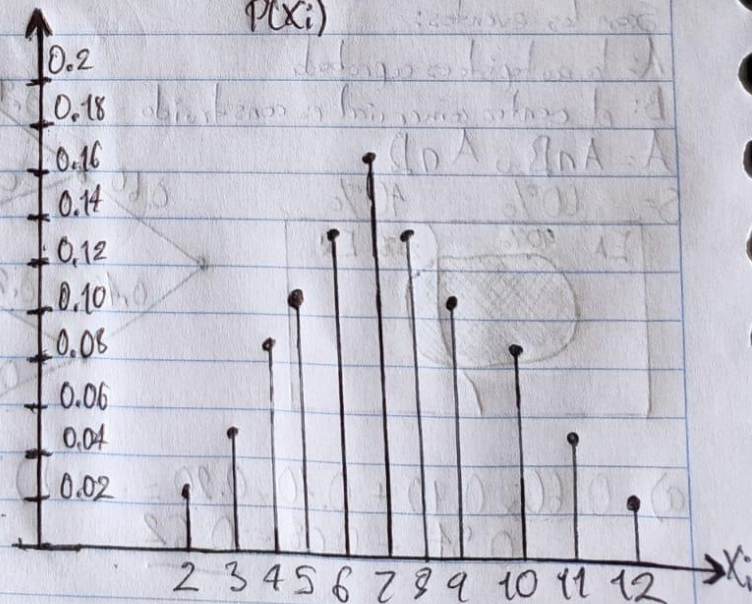 P(Xi)
0.2
0.18
0.16
0.14
0.12
0.10
0.08
0.06
0.04
0.02
2 3 4 5 6 7 8 9 10 11 12
Xi